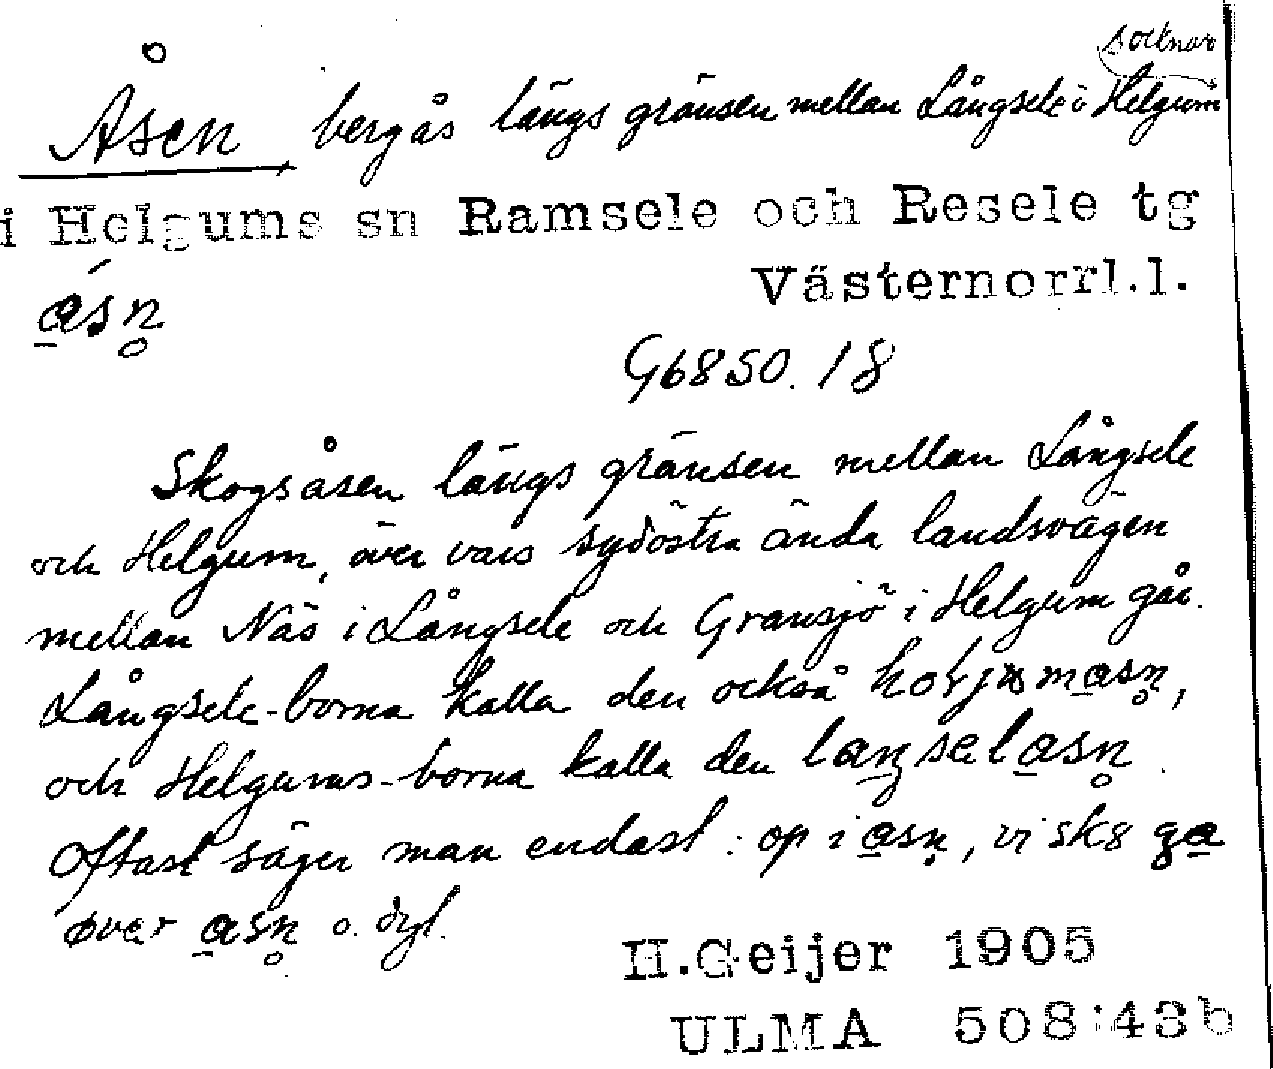 socknar
Åsen, bergås längs gränsen mellan Långsele o Helgum
i Helgums sn Ramsele och Resele tg
Västernorrl.l.
åsn̥
G6850. 18
Skogsåsen längs gränsen mellan Långsele
och Helgum, över vars sydöstra ända landsvägen
mellan Näs i Långsele och Gransjö i Helgum går.
Långsele-borna kalla den också
och Helgums-borna kalla den
Oftast säger man endast: op i a̲sn̥, vi sk8 ga̲
øvər a̲sn̥ o. dyl.
H.Geijer 1905
ULMA 508:43b